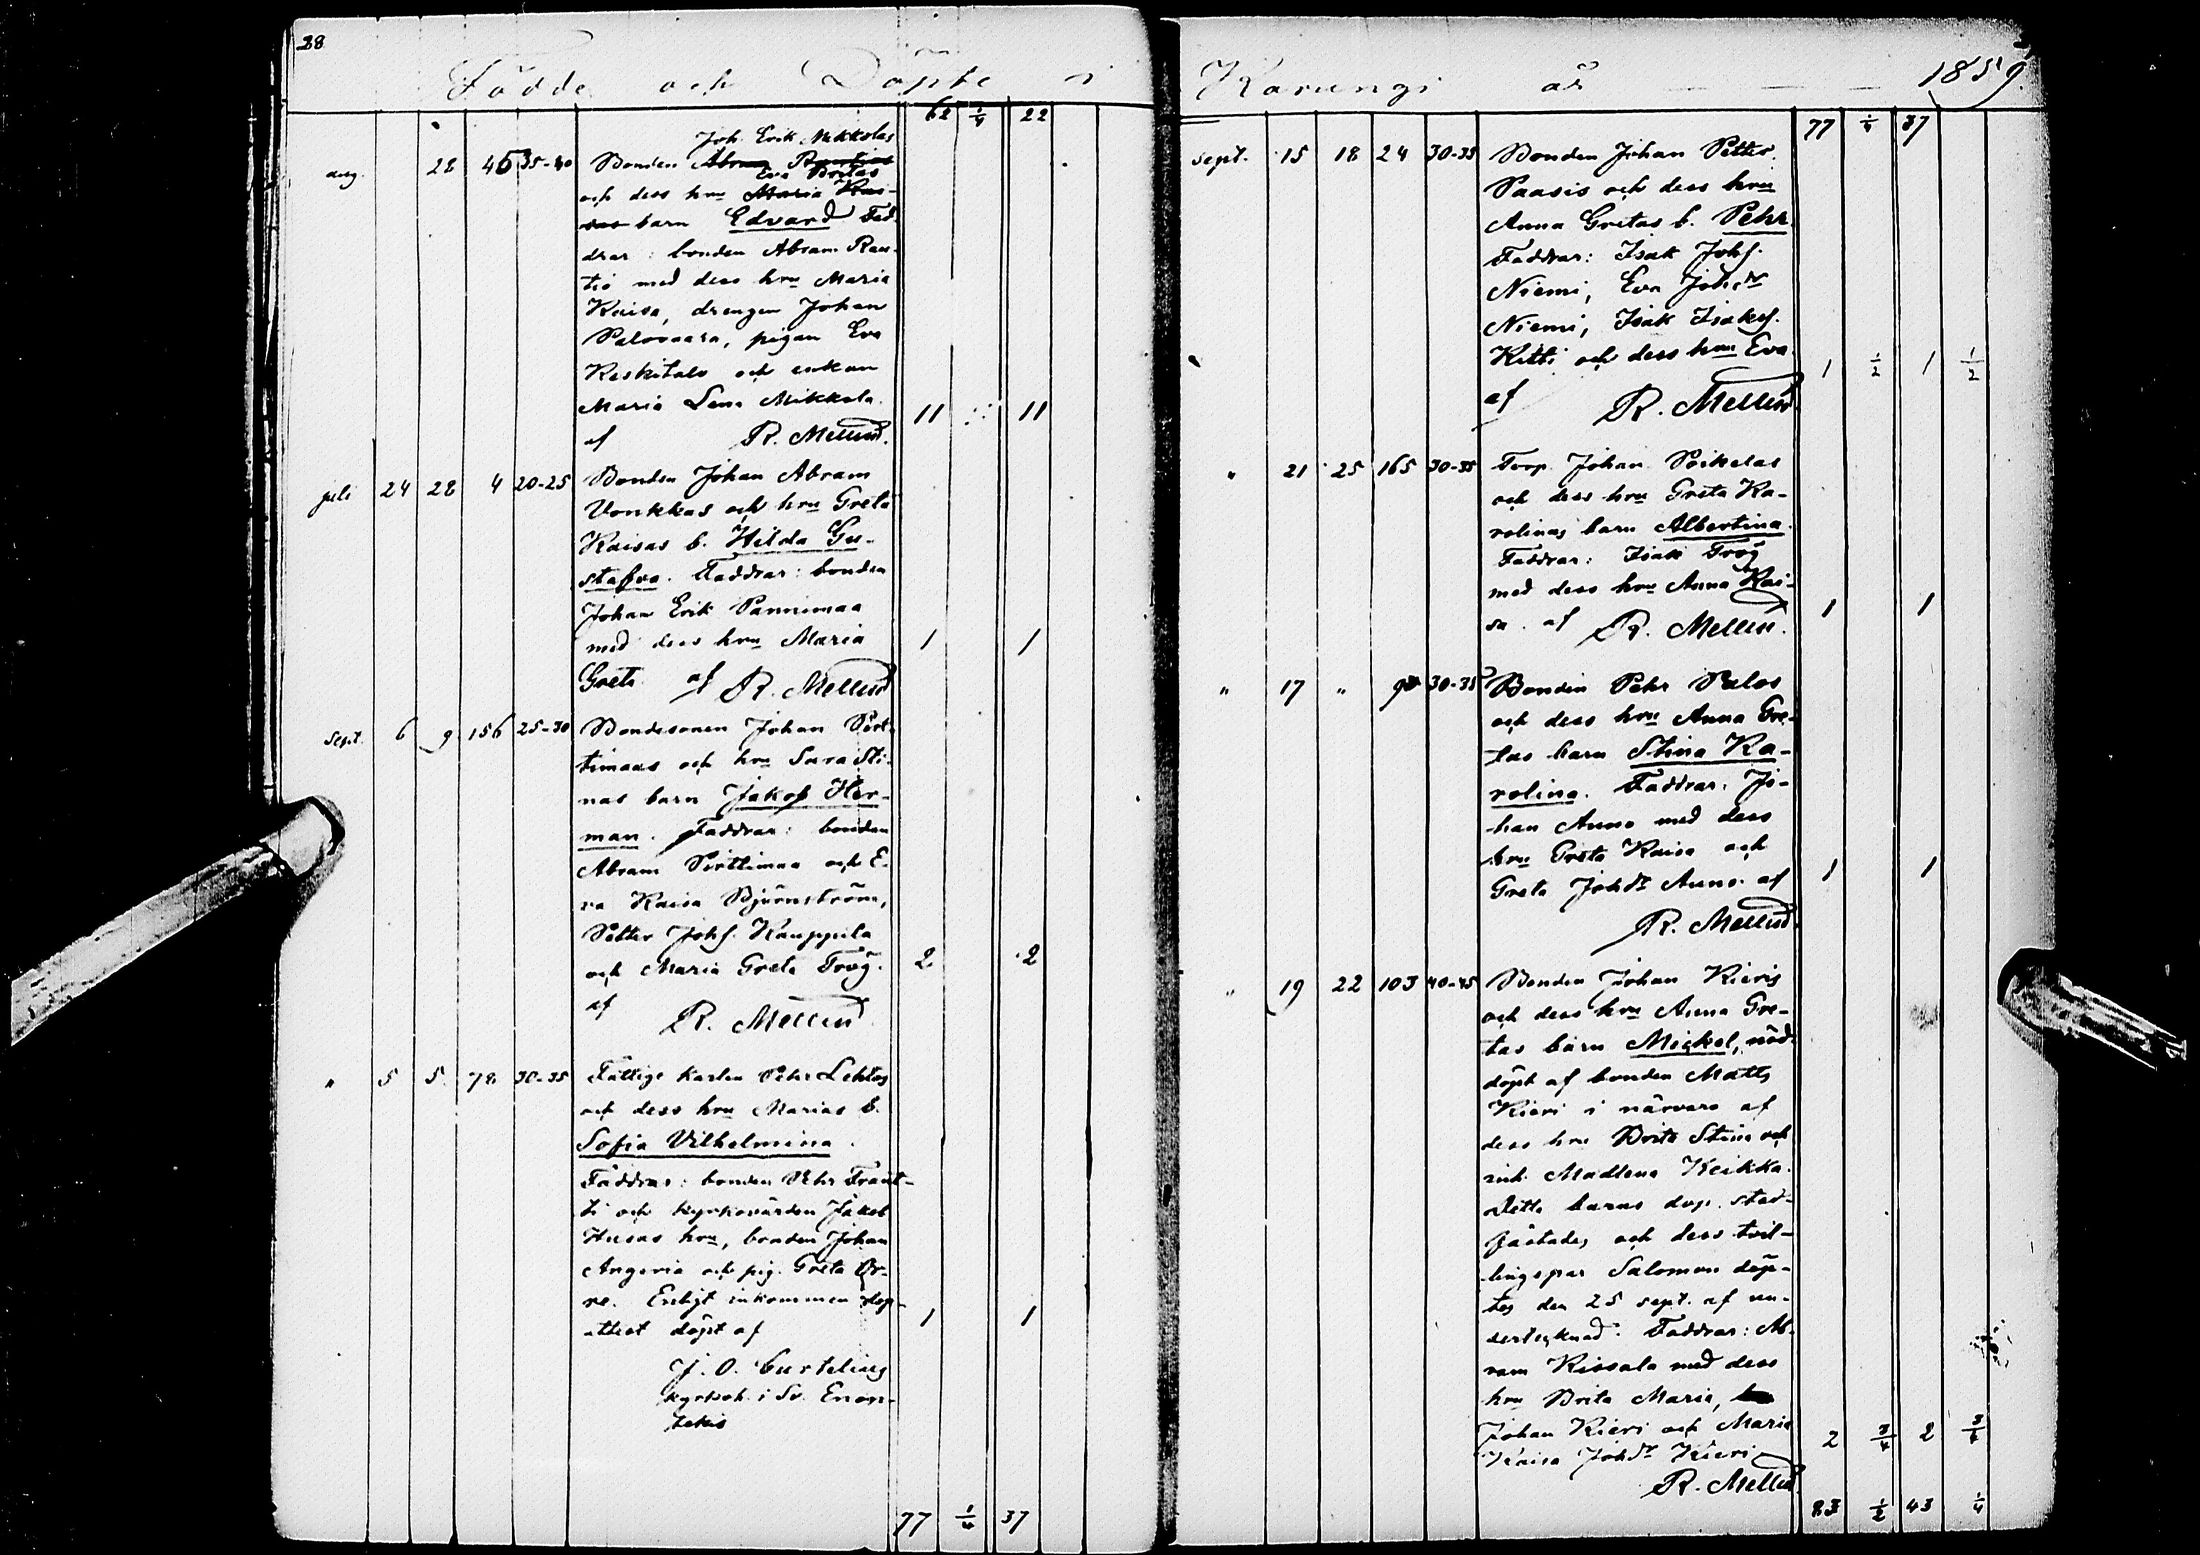 28
Födde och Döpte i
62 1/4 22
Joh. Erik Mikkolas
aug. 28 46 35-40 Bonden Abram Rautios
Eva Britas
och dess hru Maria Kai-
sas barn Edvard Fad-
drar: bonden Abram Rau-
tio med dess hru Maria
Kaisa, drengen Johan
Palovaara, pigan Eva
Keskitalo och enkan
Maria Lena Mikkola.
11 11
af R. Mellin.
juli 24 28 4 20-25 Bonden Johan Abram
Vonkkas och hru Greta
Kaisas b. Hilda Gu-
stafva. Faddrar: bonden
Johan Erik Pannimaa
med dess hru Maria 1 1
Greta af R. Mellin
Sept. 6 9 156 25-30 Bondesonen Johan Pirt-
timaas och hru Sara Sti-
nas barn Jakob Her-
man. Faddrar: bonden
Abram Pirttimaa och E-
va Kaisa Björnström,
Petter Johs. Kauppila
och Maria Greta Trög. 2 2
af R. Mellin
" 5 5 78 30-35 Fattige karlen Pehr Lehtos
och dess hru Marias b.
Sofia Vilhelmina.
Faddrar: bonden Pehr Frant-
ti och kyrkovärden Jakob
Husas hru, bonden Johan
Angeria och pig. Greta Or-
re. Enligt inkommen dop-
attest döpt af 1 1
J. O. Curtelius
kyrkoh. i Sv. Enon-
tekis
77 1/4 37
Karungi år 1859.
77 1/4 37
sept. 15 18 24 30-35 Bonden Johan Petter
Paasis och dess hru
Anna Gretas b. Pehr.
Faddrar: Isak Johs.
Niemi, Eva Johdr
Niemi, Isak Isaks.
Kitti och dess hru Eva 1 1/2 1 1/2
af R. Mellin
" 21 25 165 30-35 Torp. Johan Poikelas
och dess hru Greta Ka-
rolinas barn Albertina.
Faddrar: Isak Trög
med dess hru Anna Kai-
sa. af R. Mellin. 1 1
" 17 " 90 30-35 Bonden Pehr Palos
och dess hru Anna Gre-
tas barn Stina Ka-
rolina. Faddrar: Jo-
han Auno med dess
hru Greta Kaisa och
Greta Johdr Auno. af 1 1
R. Mellin
" 19 22 103 40-45 Bonden Johan Kieris
och dess hru Anna Gre-
tas barn Mickel, nöd-
döpt af bonden Matts
Kieri i närvaro af
dess hru Brita Stina och
enk. Madlena Keikka.
Detta barns dop. stad-
fästades och dess tvil-
lingspar Salomon döp-
tes den 25 sept. af un-
dertecknad. Faddrar: Ab-
ram Kissala med dess
hru Brita Maria,
Johan Kieri och Maria 2 3/4 2 3/4
Kaisa Johdr Kieri
R. Mellin
83 1/2 43 1/4